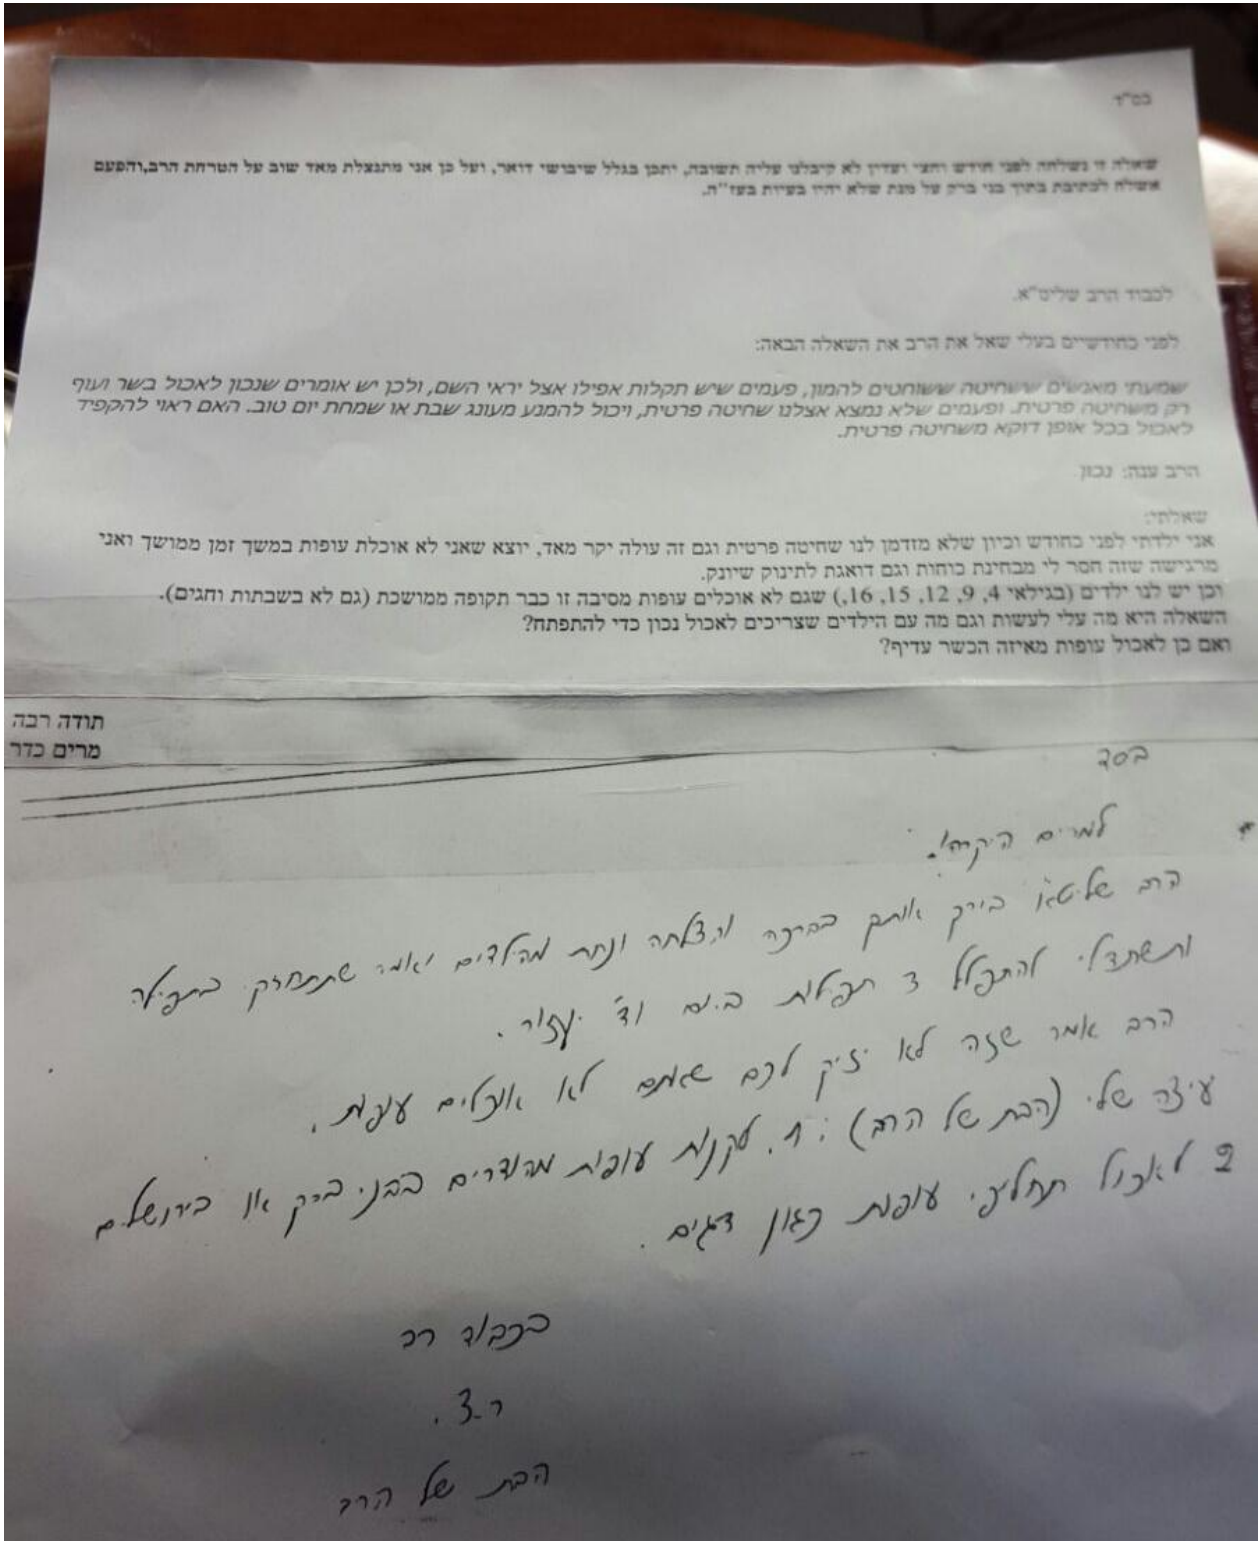 בס"ד
שאלה זו נשלחה לפני חודש וחצי ועדין לא קיבלנו עליה תשובה, יתכן בגלל שיבושי דואר, ועל כן אני מתנצלת מאד שוב על הטרחת הרב,והפעם
אשלח לכתובת בתוך בני ברק על מנת שלא יהיו בעיות בעז"ה.
לכבוד הרב שליט"א.
לפני כחודשיים בעלי שאל את הרב את השאלה הבאה:
שמעתי מאנשים ששחיטה ששוחטים להמון, פעמים שיש תקלות אפילו אצל יראי השם, ולכן יש אומרים שנכון לאכול בשר ועוף
רק משחיטה פרטית. ופעמים שלא נמצא אצלנו שחיטה פרטית, ויכול להמנע מעונג שבת או שמחת יום טוב. האם ראוי להקפיד
לאכול בכל אופן דוקא משחיטה פרטית.
הרב ענה: נכון
שאלתי:
אני ילדתי לפני כחודש וכיון שלא מזדמן לנו שחיטה פרטית וגם זה עולה יקר מאד, יוצא שאני לא אוכלת עופות במשך זמן ממושך ואני
מרגישה שזה חסר לי מבחינת כוחות וגם דואגת לתינוק שיונק.
וכן יש לנו ילדים (בגילאי 4, 9, 12, 15, 16,) שגם לא אוכלים עופות מסיבה זו כבר תקופה ממושכת (גם לא בשבתות וחגים).
השאלה היא מה עלי לעשות וגם מה עם הילדים שצריכים לאכול נכון כדי להתפתח?
ואם כן לאכול עופות מאיזה הכשר עדיף?
תודה רבה
מרים כדר
בסד
למרים היקרה!
הרב שליט"א בירך אותך בברכה והצלחה ונחת מהילדים ואמר שתתחזק בתפילה
ותשתדלי להתפלל 3 תפילות ביום וד' יעזור.
הרב אמר שזה לא יזיק לכם שאתם לא אוכלים עופות.
עיצה שלי (הבת של הרב): 1. לקנות עופות מהודרים בבני ברק או בירושלים
2 לאכול תחליפי עופות כגון דגים.
בכבוד רב
ר.צ.
הבת של הרב